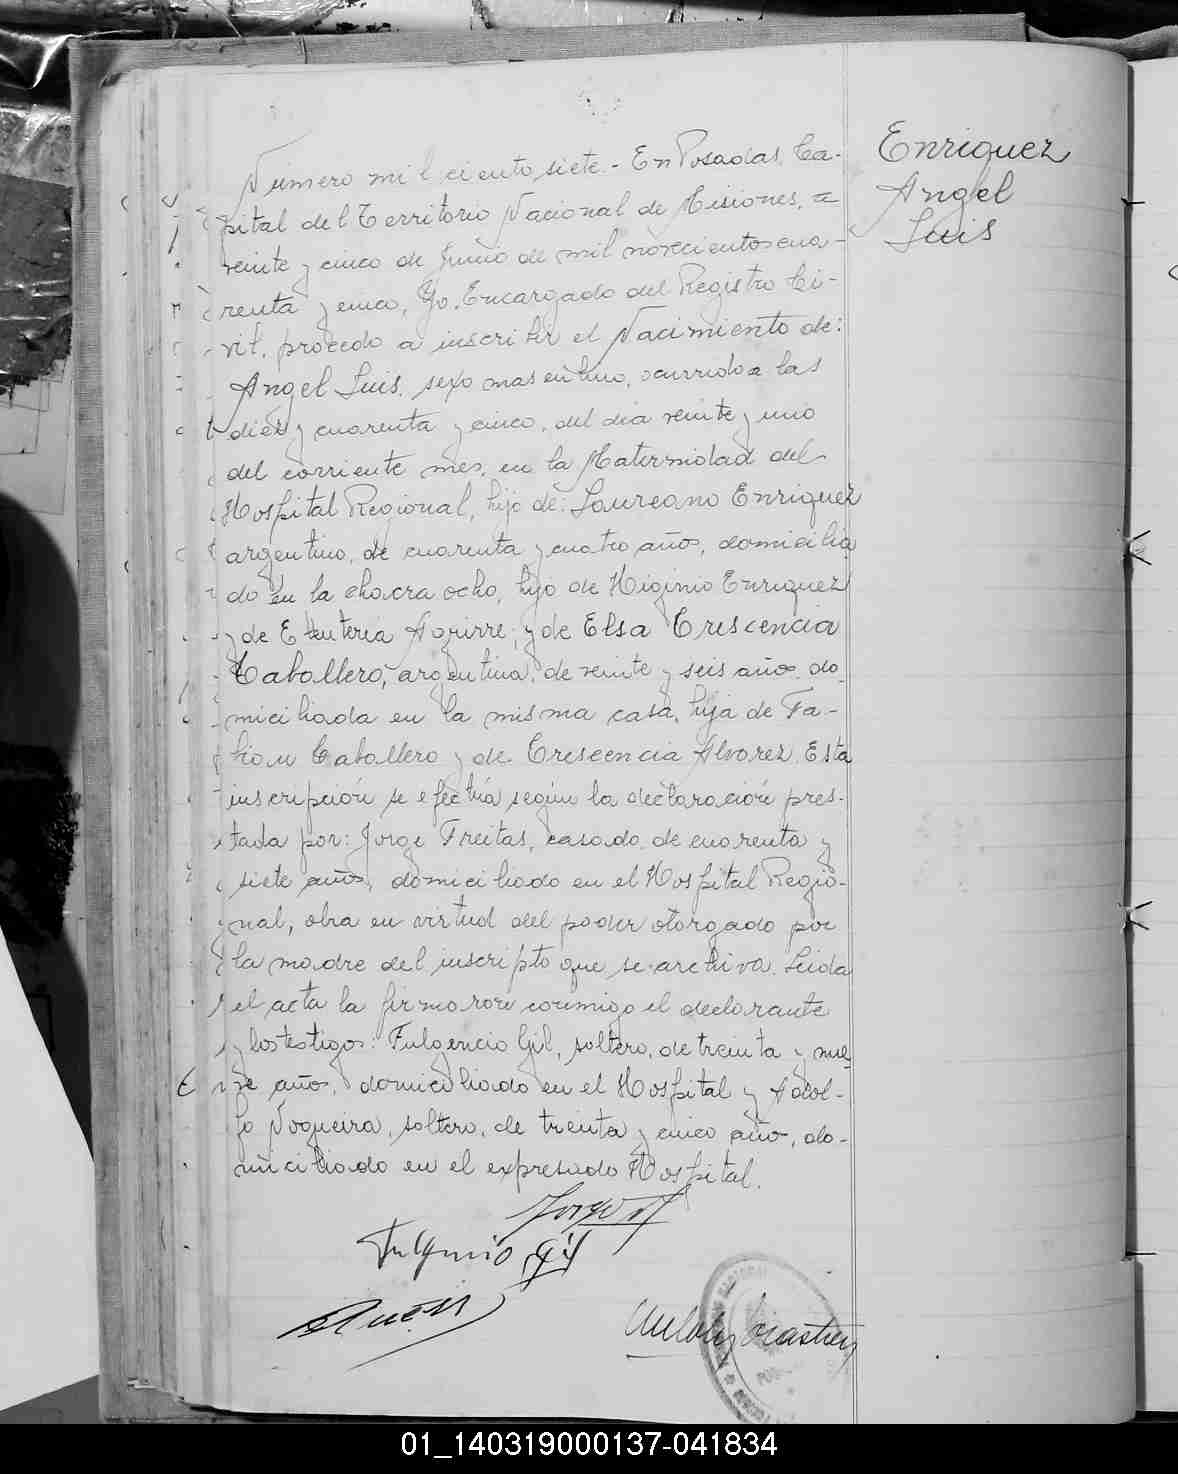 Enriquez
Angel
Luis
Número mil ciento siete.- En Posadas, Ca-
pital del Territorio Nacional de Misiones, a
veinte y cinco de Junio de mil novecientos cua-
renta y cinco, Yo, Encargado del Registro Ci-
vil, procedo a inscribir el Nacimiento de:
Angel Luis, sexo masculino, ocurrido a las
diez y cuarenta y cinco, del dia veinte y uno
del corriente mes, en la Maternidad del
Hospital Regional, hijo de: Laureano Enriquez
argentino, de cuarenta y cuatro años, domicilia
do en la chacra ocho, hijo de Higinio Enriquez
y de Eleuteria Aguirre; y de Elsa Crescencia
Caballero, argentina, de veinte y seis años, do-
miciliada en la misma casa, hija de Fa-
bian Caballero y de Crescencia Alvarez. Esta
inscripción se efectúa según la declaración pres-
tada por: Jorge Freitas, casado, de cuarenta y
siete años, domiciliado en el Hospital Regio-
nal, obra en virtud del poder otorgado por
la madre del inscripto que se archiva. Leida
el acta la firmaron conmigo el declarante
y los testigos: Fulgencio Gil, soltero, de treinta y nue
ve años, domiciliado en el Hospital y Adol-
fo Nogueira, soltero, de treinta y cinco años, do-
miciliado en el expresado Hospital.
Fulgencio Gil
01_140319000137-041834